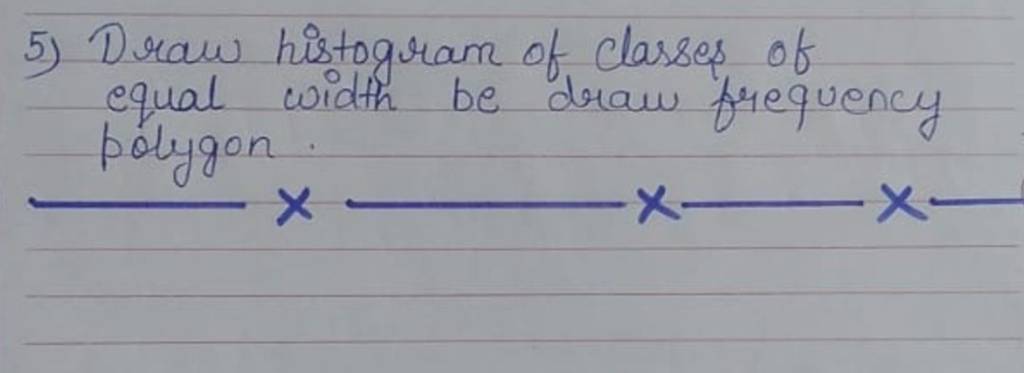 5) Draw histogram of classes of
equal width be draw frequency
polygon.